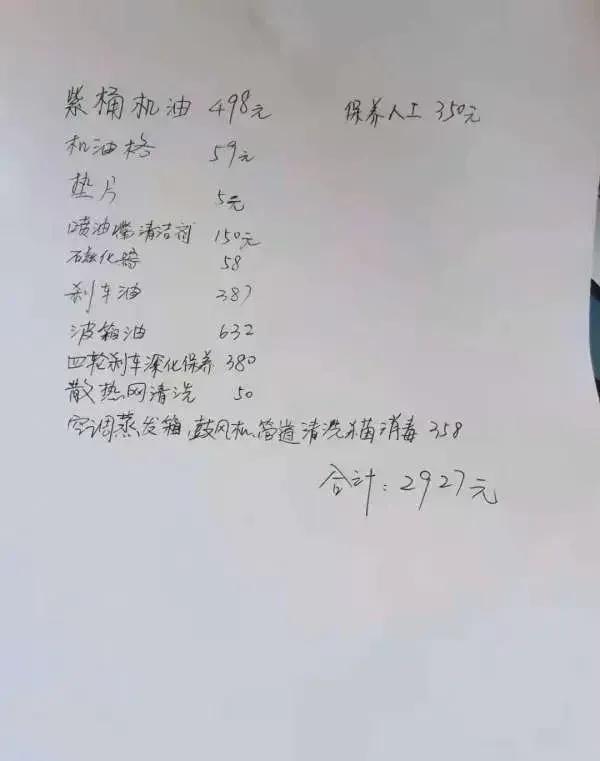 紫桶机油 498元 保养人工 350元
机油格 59元
垫片 5元
喷油嘴清洁剂 150元
58
刹车油 387
波箱油 632
四轮刹车深化保养 380
散热网清洗 50
空调蒸发箱、鼓风机、管道清洗消毒 358
合计：2927元